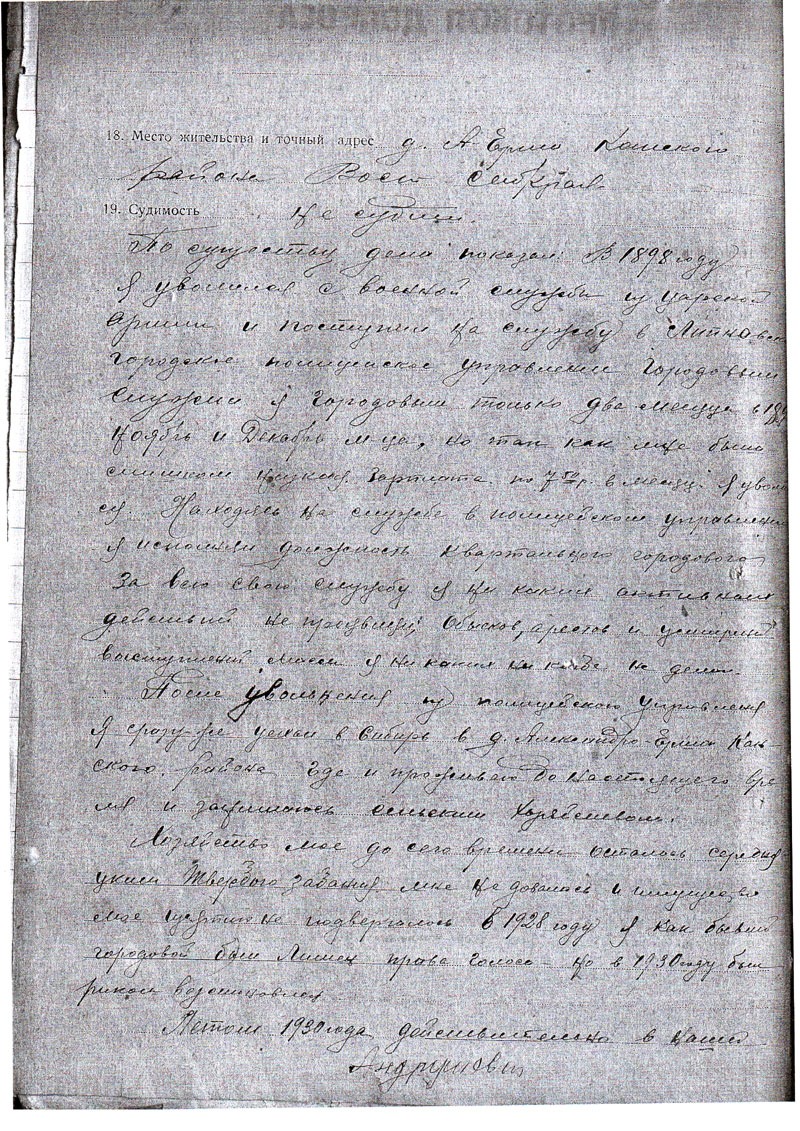 18. Место жительства и точный адрес д. А Ерма Канского
района Вост Сиб края
19. Судимость не судим.
По существу дела показал: В 1898 году
я уволился с военной службы из царской
армии и поступил на службу в
городское полицейское управление городовым
Служил я городовым только два месяца в 189
Ноябрь и Декабрь м-ца, но так как мне была
слишком низкая зарплата по 7 50 р. в месяц я уволи
ся. Находясь на службе в полицейском управлении
я исполнял должность квартального городового
За всю свою службу я ни каких активных
действий не проявлял, Обысков, арестов и усмирений
выступлений массы я ни каких не делал.
После увольнения из полицейского управления
я сразу же уехал в Сибирь в д. Александро-Ерма Кан-
ского района где и проживаю до настоящего вре
мя и занимаюсь сельским хозяйством.
Хозяйство мое до сего времени осталось середня
уким Твердого задания мне не довалось и имущество
мое не подвергалось в 1928 году я как бывший
городовой был Лишен права голоса но в 1930 году был
риком восстановлен
Летом 1930 года действительно в нашей